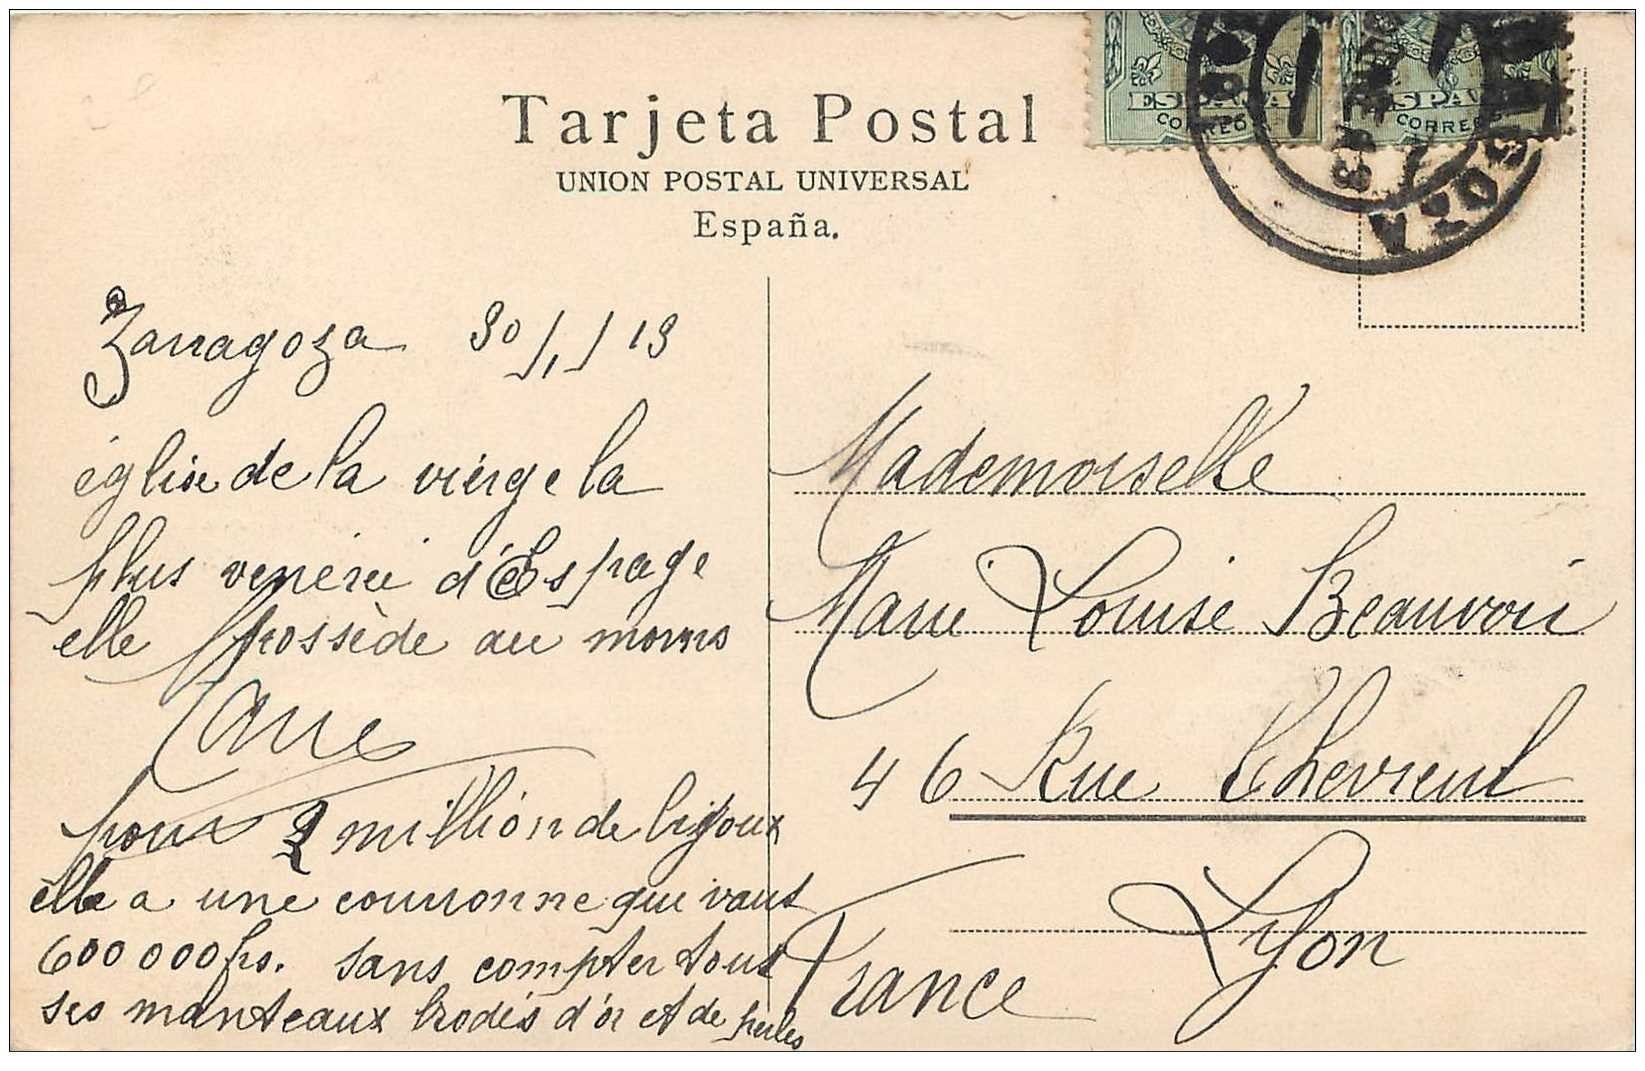 Tarjeta Postal
UNION POSTAL UNIVERSAL
España.
ESPAÑA
CORREOS
ESPAÑA
CORREOS
Zarragoza 30/1/13
église de la vièrge la
plus vénérée d'Espage
elle possède au moins
pour 2 million de bijoux
elle a une couronne qui vaut
600 000 frs. sans compter tous
ses manteaux brodés d'or et de perles
Mademoiselle
Marie Louise Beauvoir
46 Rue Chevreul
Lyon
France